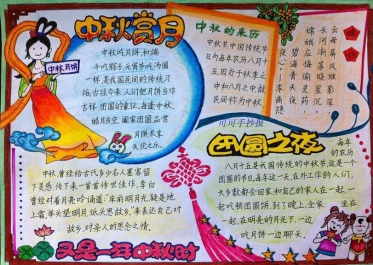 中秋赏月
中秋月饼
中秋吃月饼和端
午吃粽子、元宵节吃汤圆
一样是我国民间的传统习
俗。古往今来人们把月饼当作
吉祥、团圆的象征。每逢中秋,
皓月当空,阖家团圆品赏
月饼谈天
天伦乐。
中秋的来历
中秋节中国传统节
日为每年农历八月十
五因处于秋季之
中和八月之中故
民间称为中秋
嫦娥
云母屏风烛影深
长河渐落晓星沉
嫦娥应悔偷灵药
碧海青天夜夜心
李商隐
可可手抄报
团圆之夜
每年
的农历
八月十五是我国传统的中秋节,这是一个
团圆的节日。每年这一天,在外工作的人们,
大多数都会回家,和自己的家人在一起,一
起吃顿团圆饼,到了晚上,全家坐在
一起,在明亮的月光下,一边
吃月饼一边聊天。
中秋,曾经给古代多少名人墨客留
下灵感,传下来一首首传世佳作,李白
曾经对着月亮吟诵道:“床前明月光,疑是地
上霜,举头望明月,低头思故乡。”来表达自己对
故乡,对亲人的思念之情。
又是一年中秋时